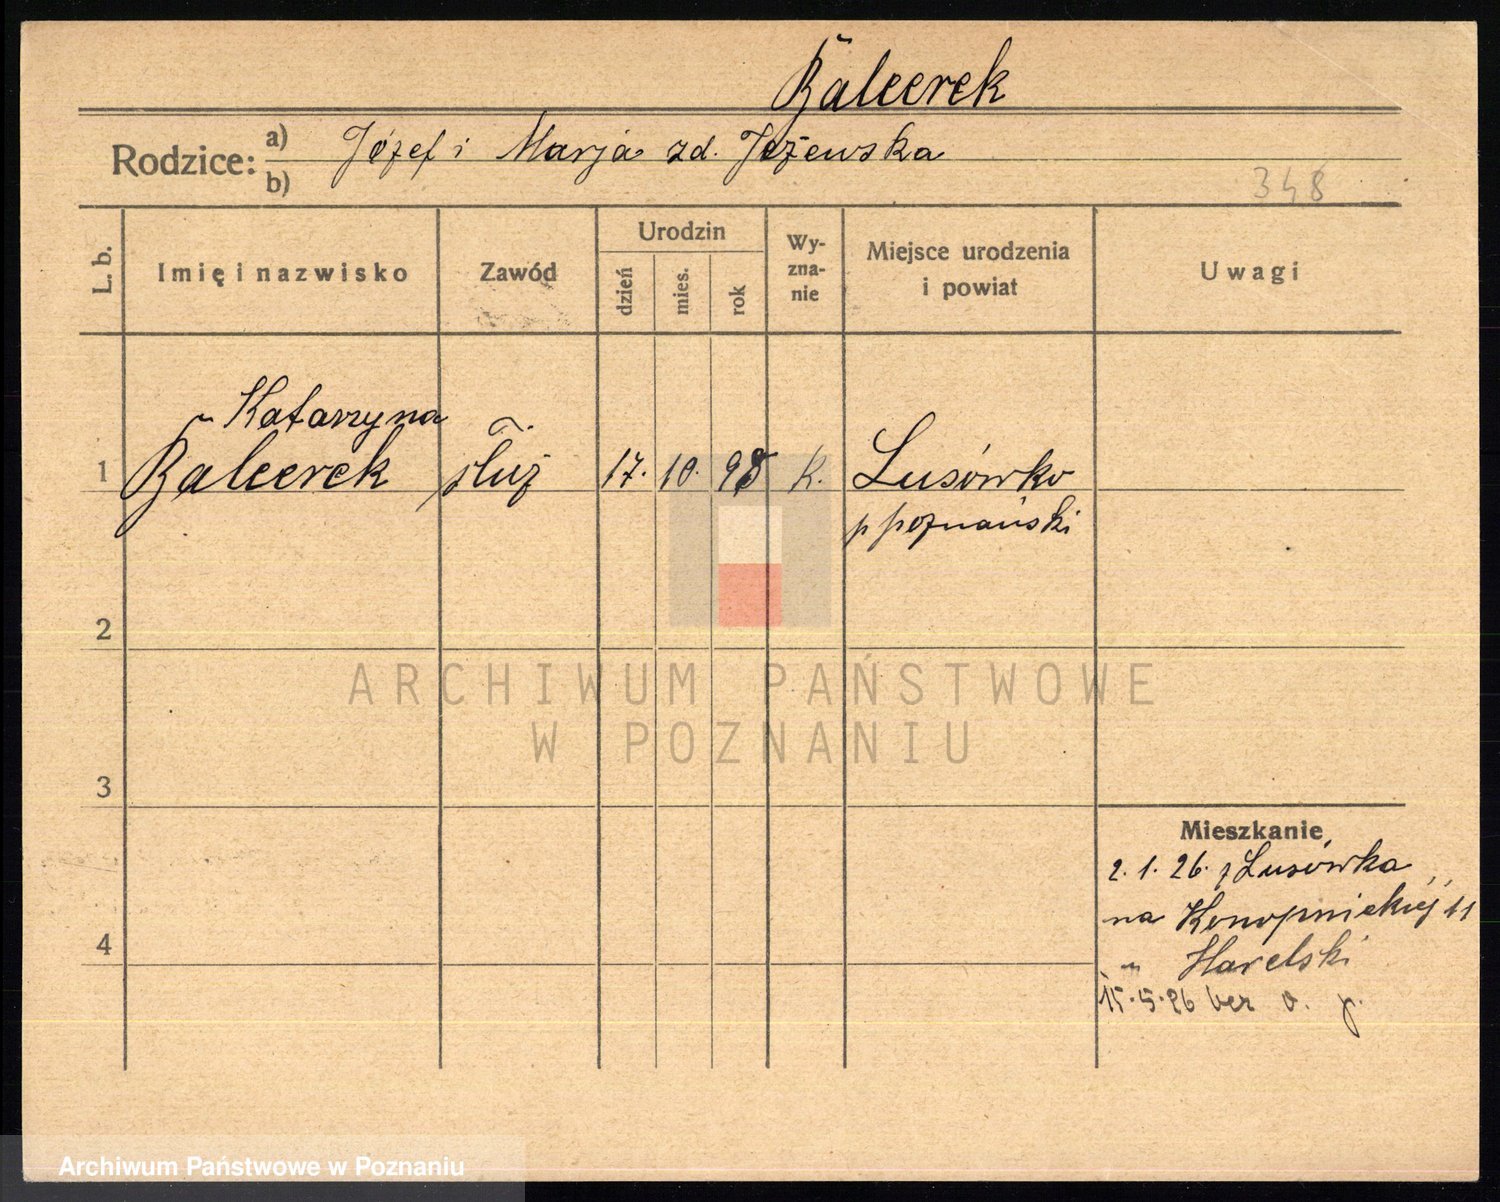 Balcerek
Rodzice: a) Józef i Marja zd. Jeżewska
b)
348
L. b.
Imię i nazwisko
Zawód
Urodzin
dzień
mies.
rok
Wy-
zna-
nie
Miejsce urodzenia
i powiat
Uwagi
Katarzyna
1 Balcerek służ 17. 10. 98 k. Lusówko
p poznański
2
3
4
Mieszkanie
2. 1. 26. z Lusówka
na Konopnickiej 11
" Harelski
15.5.26 bez o. p.
ARCHIWUM PAŃSTWOWE
W POZNANIU
Archiwum Państwowe w Poznaniu